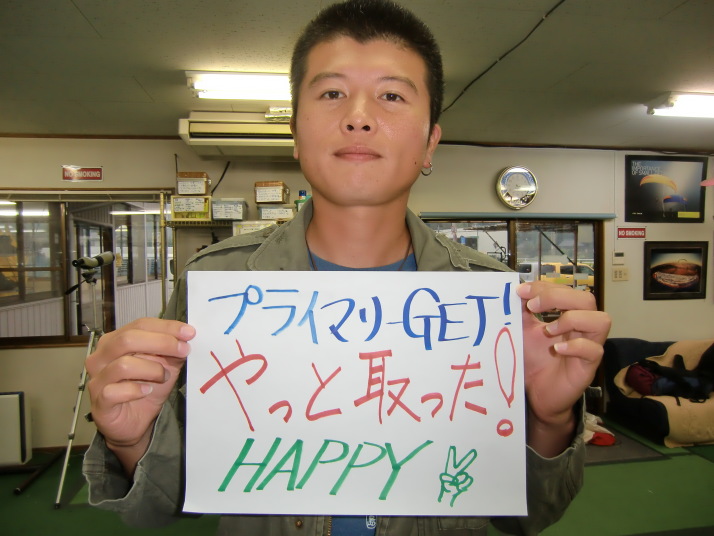 プライマリーGET!
やっと取った!
HAPPY
NO SMOKING
NO SMOKING